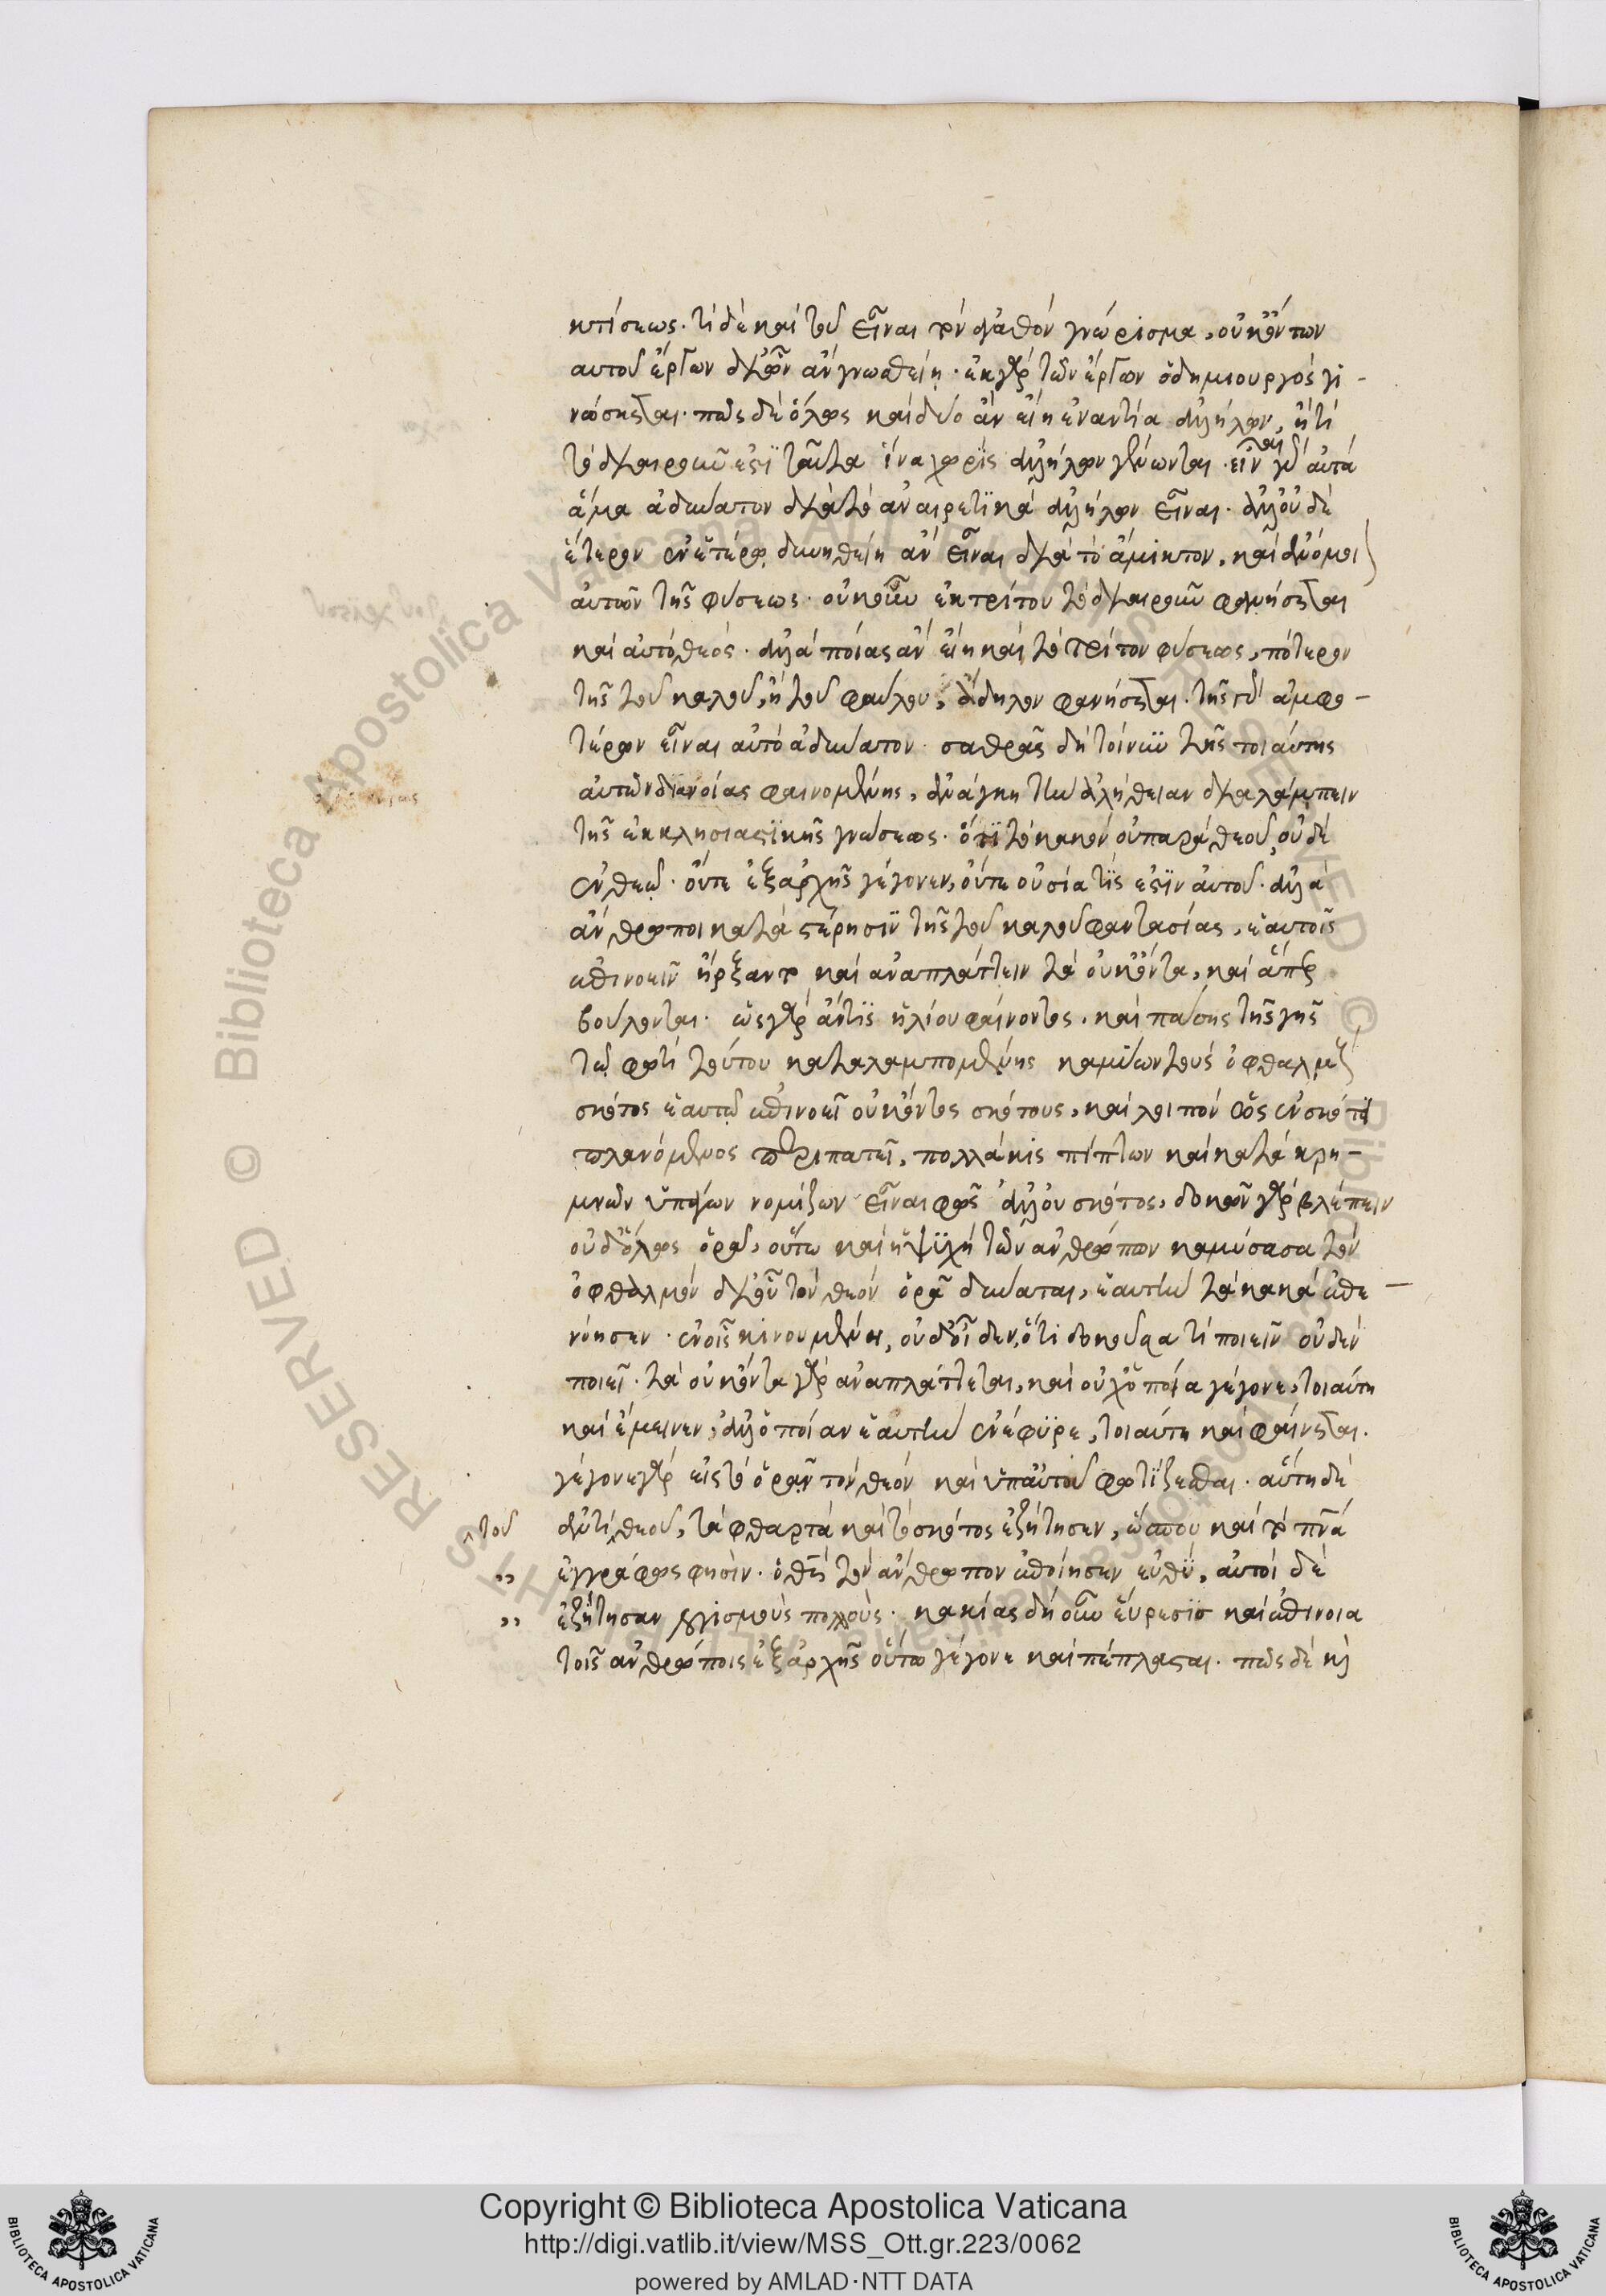 κτίσεως. τί δὲ καὶ τοῦ εἶναι τὸν ἀγαθὸν γνώρισμα, οὐκ ὄντων
αυτοῦ ἔργων δι' ὧν ἂν γνωσθείη. ἐκ γὰρ τῶν ἔργων ὁ δημιουργὸς γι-
νώσκεται. πῶς δὲ ὅλως καὶ δύο ἂν εἴη ἐναντία ἀλλήλων, ἢ τί
τὸ διαιροῦν ἐστὶ ταῦτα ἵνα χωρὶς ἀλλήλων γένωνται. εἶναι γὰρ αὐτὰ
ἅμα ἀδύνατον διὰ τὸ ἀναιρετικὰ ἀλλήλων εἶναι. ἀλλ' οὐδὲ
ἕτερον ἐν ἑτέρῳ δυνηθείη ἂν εἶναι διὰ τὸ ἄμικτον, καὶ ἀνόμοι
αὐτῶν τῆς φύσεως. οὐκοῦν ἐκ τρίτου τὸ διαιροῦν φανήσεται
καὶ αὐτὸ θεός. ἀλλὰ ποίας ἂν εἴη καὶ τὸ τρίτον φύσεως, πότερον
τῆς τοῦ καλοῦ, ἢ τοῦ φαύλου, ἄδηλον φανήσεται. τῆς γὰρ ἀμφο-
τέρων εἶναι αὐτὸ ἀδύνατον. σαθρᾶς δὴ τοίνυν τῆς τοιαύτης
αὐτῶν διανοίας φαινομένης, ἀνάγκη τὴν ἀλήθειαν διαλάμπειν
τῆς ἐκκλησιαστικῆς γνώσεως. ὅτι τὸ κακὸν οὐ παρὰ θεοῦ, οὐδὲ
ἐν θεῷ. οὔτε ἐξ ἀρχῆς γέγονεν, οὔτε οὐσία τίς ἐστὶν αὐτοῦ. ἀλλὰ
ἄνθρωποι κατὰ στέρησιν τῆς τοῦ καλοῦ φαντασίας, ἑαυτοῖς
ἐπινοεῖν ἤρξαντο καὶ ἀναπλάττειν τὰ οὐκ ὄντα, καὶ ἅπερ
βούλονται. ὡς γὰρ ἄν τις ἡλίου φαίνοντος, καὶ πάσης τῆς γῆς
τῷ φωτὶ τούτου καταλαμπομένης καμύων τοὺς ὀφθαλμοὺς
σκότος ἑαυτῷ ἐπινοεῖ οὐκ ὄντος σκότους, καὶ λοιπὸν ὡς ἐν σκότει
πλανόμενος περιπατεῖ, πολλάκις πίπτων καὶ κατὰ κρη-
μνῶν ὑπάγων νομίζων εἶναι φῶς ἀλλὸν σκότος, δοκῶν γὰρ βλέπειν
οὐδ' ὅλως ὁρᾷ, οὕτω καὶ ἡ ψυχὴ τῶν ἀνθρώπων καμύσασα τὸν
ὀφθαλμὸν δι' οὗ τὸν θεὸν ὁρᾶν δύναται, ἑαυτῇ τὰ κακὰ ἐπε-
νόησεν. ἐν οἷς κινουμένη, οὐδ' οἶδεν, ὅτι δοκοῦσα τὶ ποιεῖν οὐδὲν
ποιεῖ. τὰ οὐκ ὄντα γὰρ ἀναπλάττεται, καὶ οὐχ ὁποία γέγονε, τοιαύτη
καὶ ἔμεινεν, ἀλλ' ὁποίαν ἑαυτὴν ἐνέφυρε, τοιαύτη καὶ φαίνεται.
γέγονε γὰρ εἰς τὸ ὁρᾶν τὸν θεὸν καὶ ὑπ' αὐτοῦ φωτίζεσθαι. αὕτη δὲ
^ τοῦ ἀντὶ ^ θεοῦ, τὰ φθαρτὰ καὶ τὸ σκότος ἐζήτησεν, ὥς που καὶ τὸ πνᾶ
,, ἐγγράφως φησὶν. ὁ θεὸς τὸν ἄνθρωπον ἐποίησεν εὐθῆ, αὐτοὶ δὲ
,, ἐζήτησαν λογισμοὺς πολλοὺς. κακίας δὴ οὖν εὕρεσις καὶ ἐπίνοια
τοῖς ἀνθρώποις ἐξ ἀρχῆς οὕτω γέγονε καὶ πέπλασται. πῶς δὲ καὶ
Copyright © Biblioteca Apostolica Vaticana
http://digi.vatlib.it/view/MSS_Ott.gr.223/0062
powered by AMLAD·NTT DATA